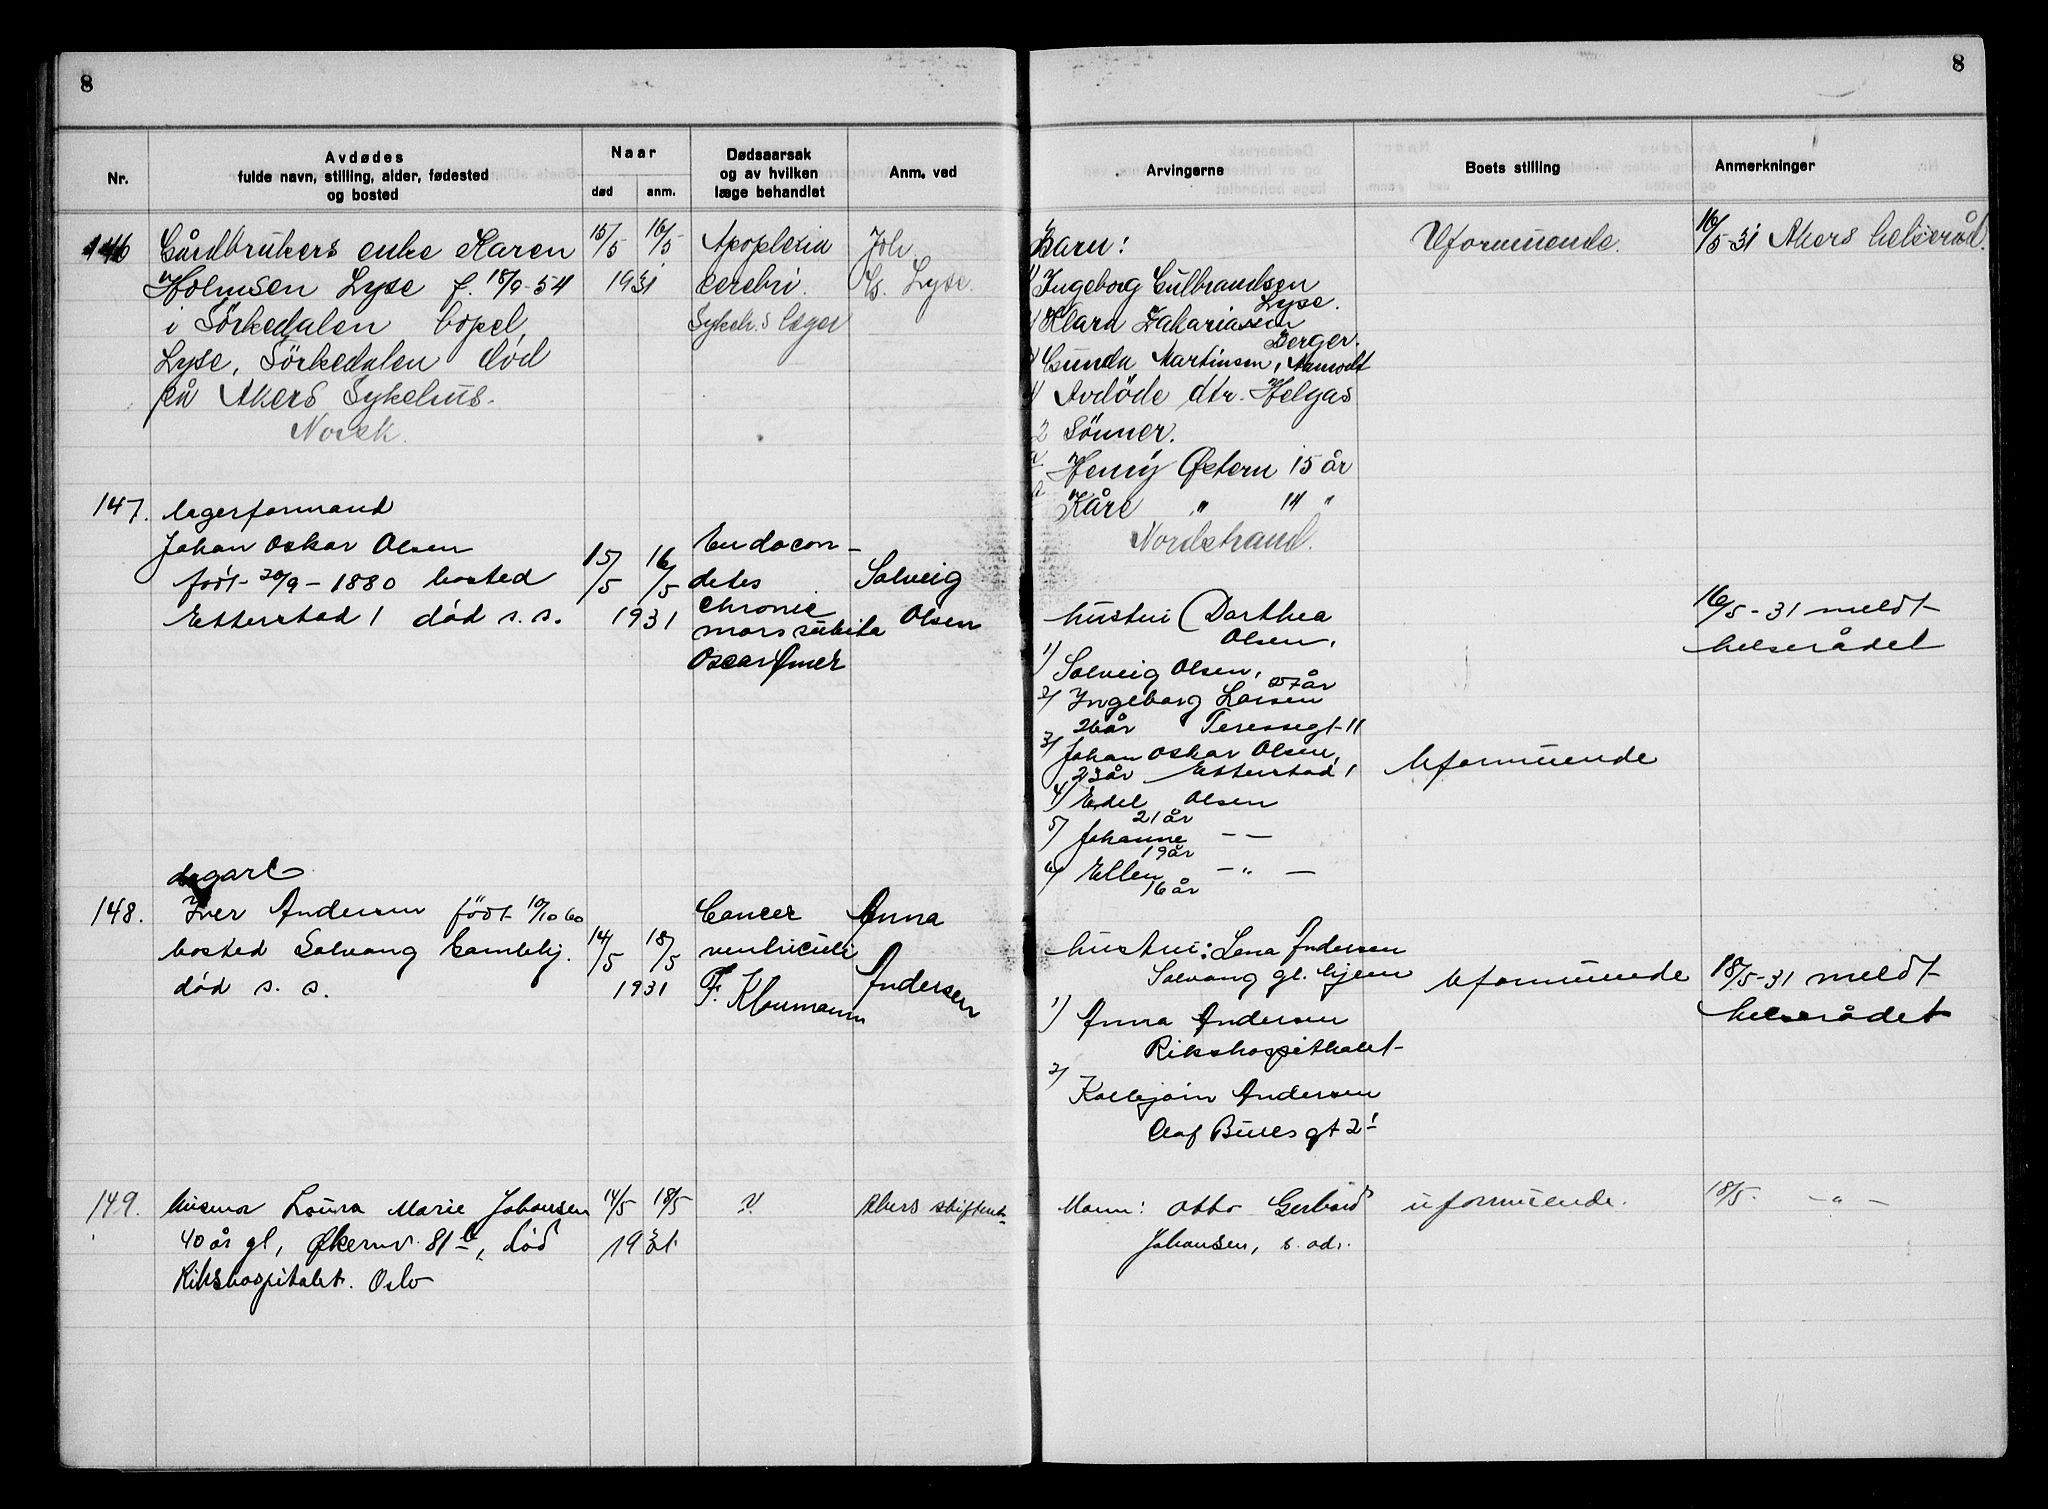 8
Nr.
Avdødes
fulde navn, stilling, alder, fødested
og bosted
Naar
død
anm.
Dødsaarsak
og av hvilken
læge behandlet
Anm. ved
146
Gårdbrukers enke Karen
Holmsen Lyse f. 18/9-54
i Sörkedalen bopel,
Lyse, Sörkedalen död
på Akers Sykehus.
Norsk.
15/5 16/5
1931
Apoplexia
cerebri.
Sykeh.s læger
Joh.
Lyse.
147.
Lagerformand
Johan Oskar Olsen
født 20/9-1880 bosted
Etterstad 1 død s.s.
15/5 16/5
1931
Endocon-
detes
chronic
mors subita
Oscar Omer
Solveig
Olsen
148.
Iver Andersen født 10/10 60
bosted Solvang Gamlehj.
død s.s.
14/5 18/5
1931
Cancer
ventriculi
F. Kloumann
Anna
Andersen
149.
Husmor Laura Marie Johansen
40 år gl, Økernv. 81 b, død
Rikshospitalet. Oslo
14/5 18/5
1931
?
Akers skifterett
8
Arvingerne
Boets stilling
Anmerkninger
Barn:
1) Ingeborg Gulbrandsen
Lyse.
Klara Zakariassen
Berger.
Gunda Martinsen, Aamodt
Avdöde dtr. Helgas
2 Sönner.
Henry Østern 15 år
Kåre " 14 "
Nordstrand.
Uformuende.
16/5-31 Akers helseråd.
hustru Dorthea
Olsen.
1) Solveig Olsen, 27 år
2) Ingeborg Larsen
26 år Teressegt 11
3) Johan Oskar Olsen,
23 år Etterstad 1
4) Edel Olsen
21 år
5) Johanne – –
19 år
6) Ellen – " –
16 år
Uformuende
16/5-31 meldt
helserådet
hustru: Lena Andersen
Solvang gl. hjem
1) Anna Andersen
Rikshospithalet
2) Kolbjørn Andersen
Olaf Bulls gt 21
Uformuende
18/5-31 meldt
helserådet
Mann: Otto Gerhard
Johansen, s. adr.
uformuende.
18/5. – " –